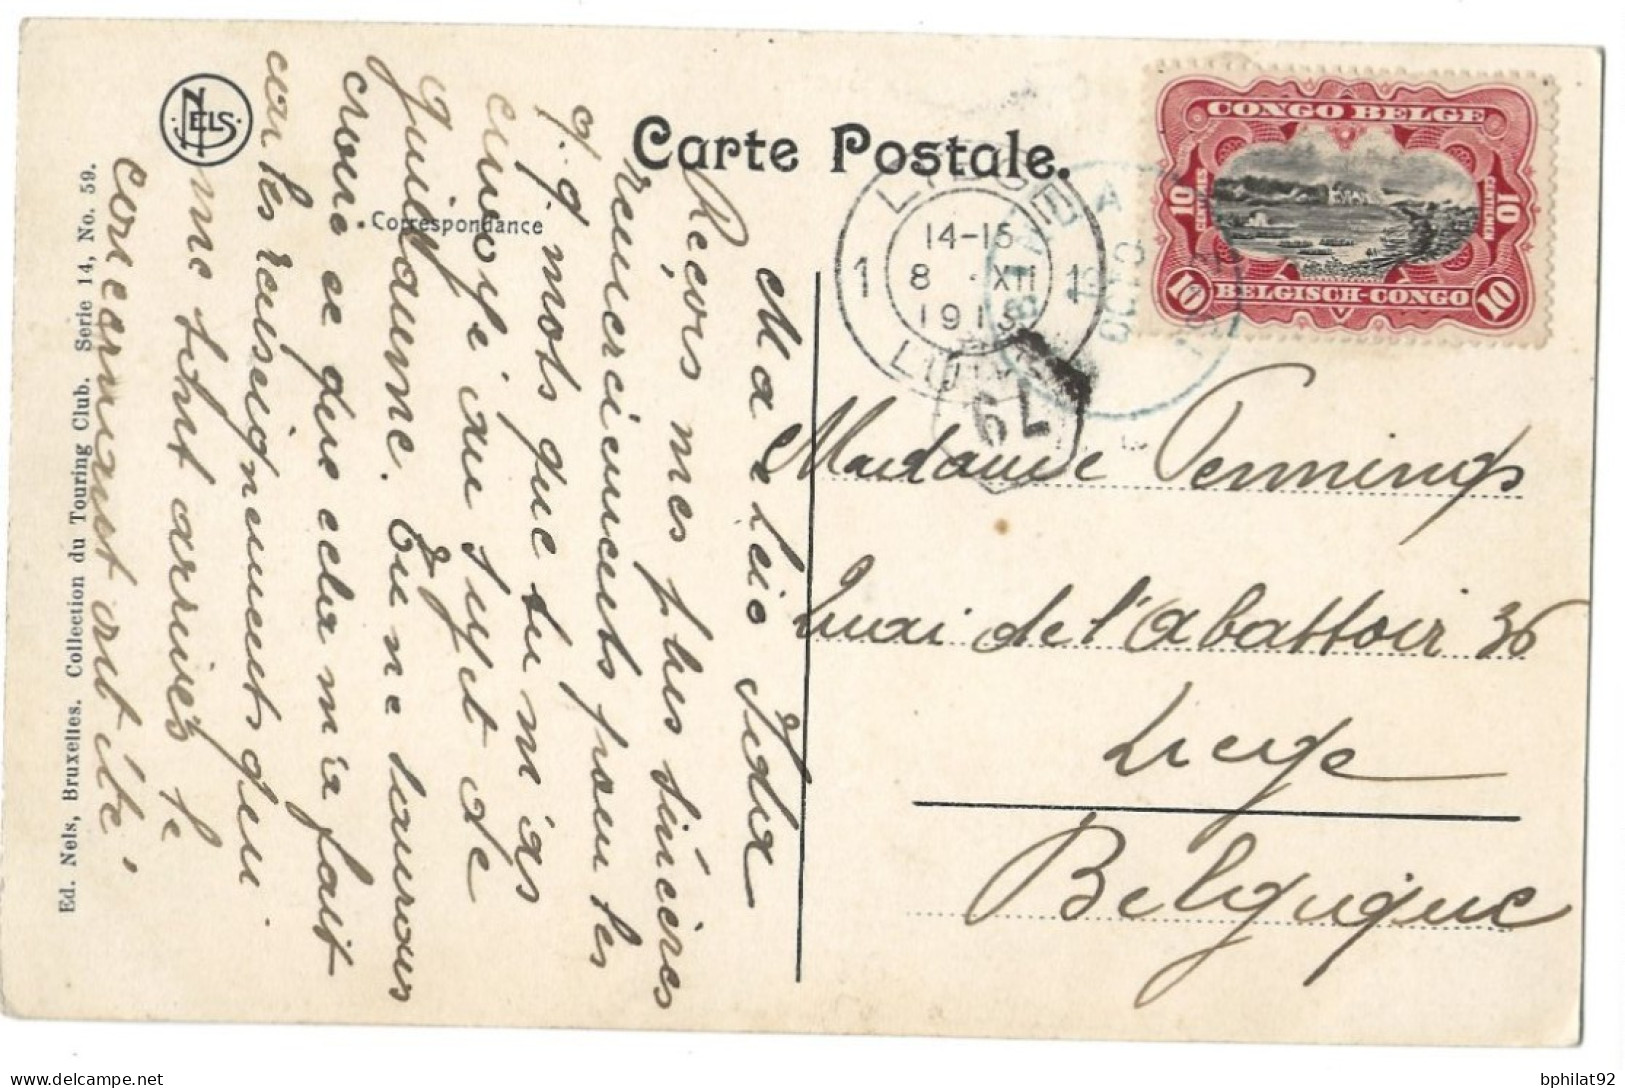 NELS.
Carte Postale.
Correspondance
Ed. Nels, Bruxelles. Collection du Touring Club. Serie 14, No. 59.
CONGO BELGE
10 CENTIMES
10 CENTIEMEN
10 BELGISCH-CONGO 10
LIEGE
1 14-15 1
8 XII
1913
BANA
OCTO
67
Ma Ida
Reçois mes plus sincères
remerciements pour les
q.q. mots que tu m'as
envoyé au sujet de
Guillaume. Tu ne saurais
croire ce que cela m'a fait
car les renseignements qui
me sont arrivés te
concernant ont été,
Madame Pennings
Quai de l'abattoir 36
Liege
Belgique
bphilat92